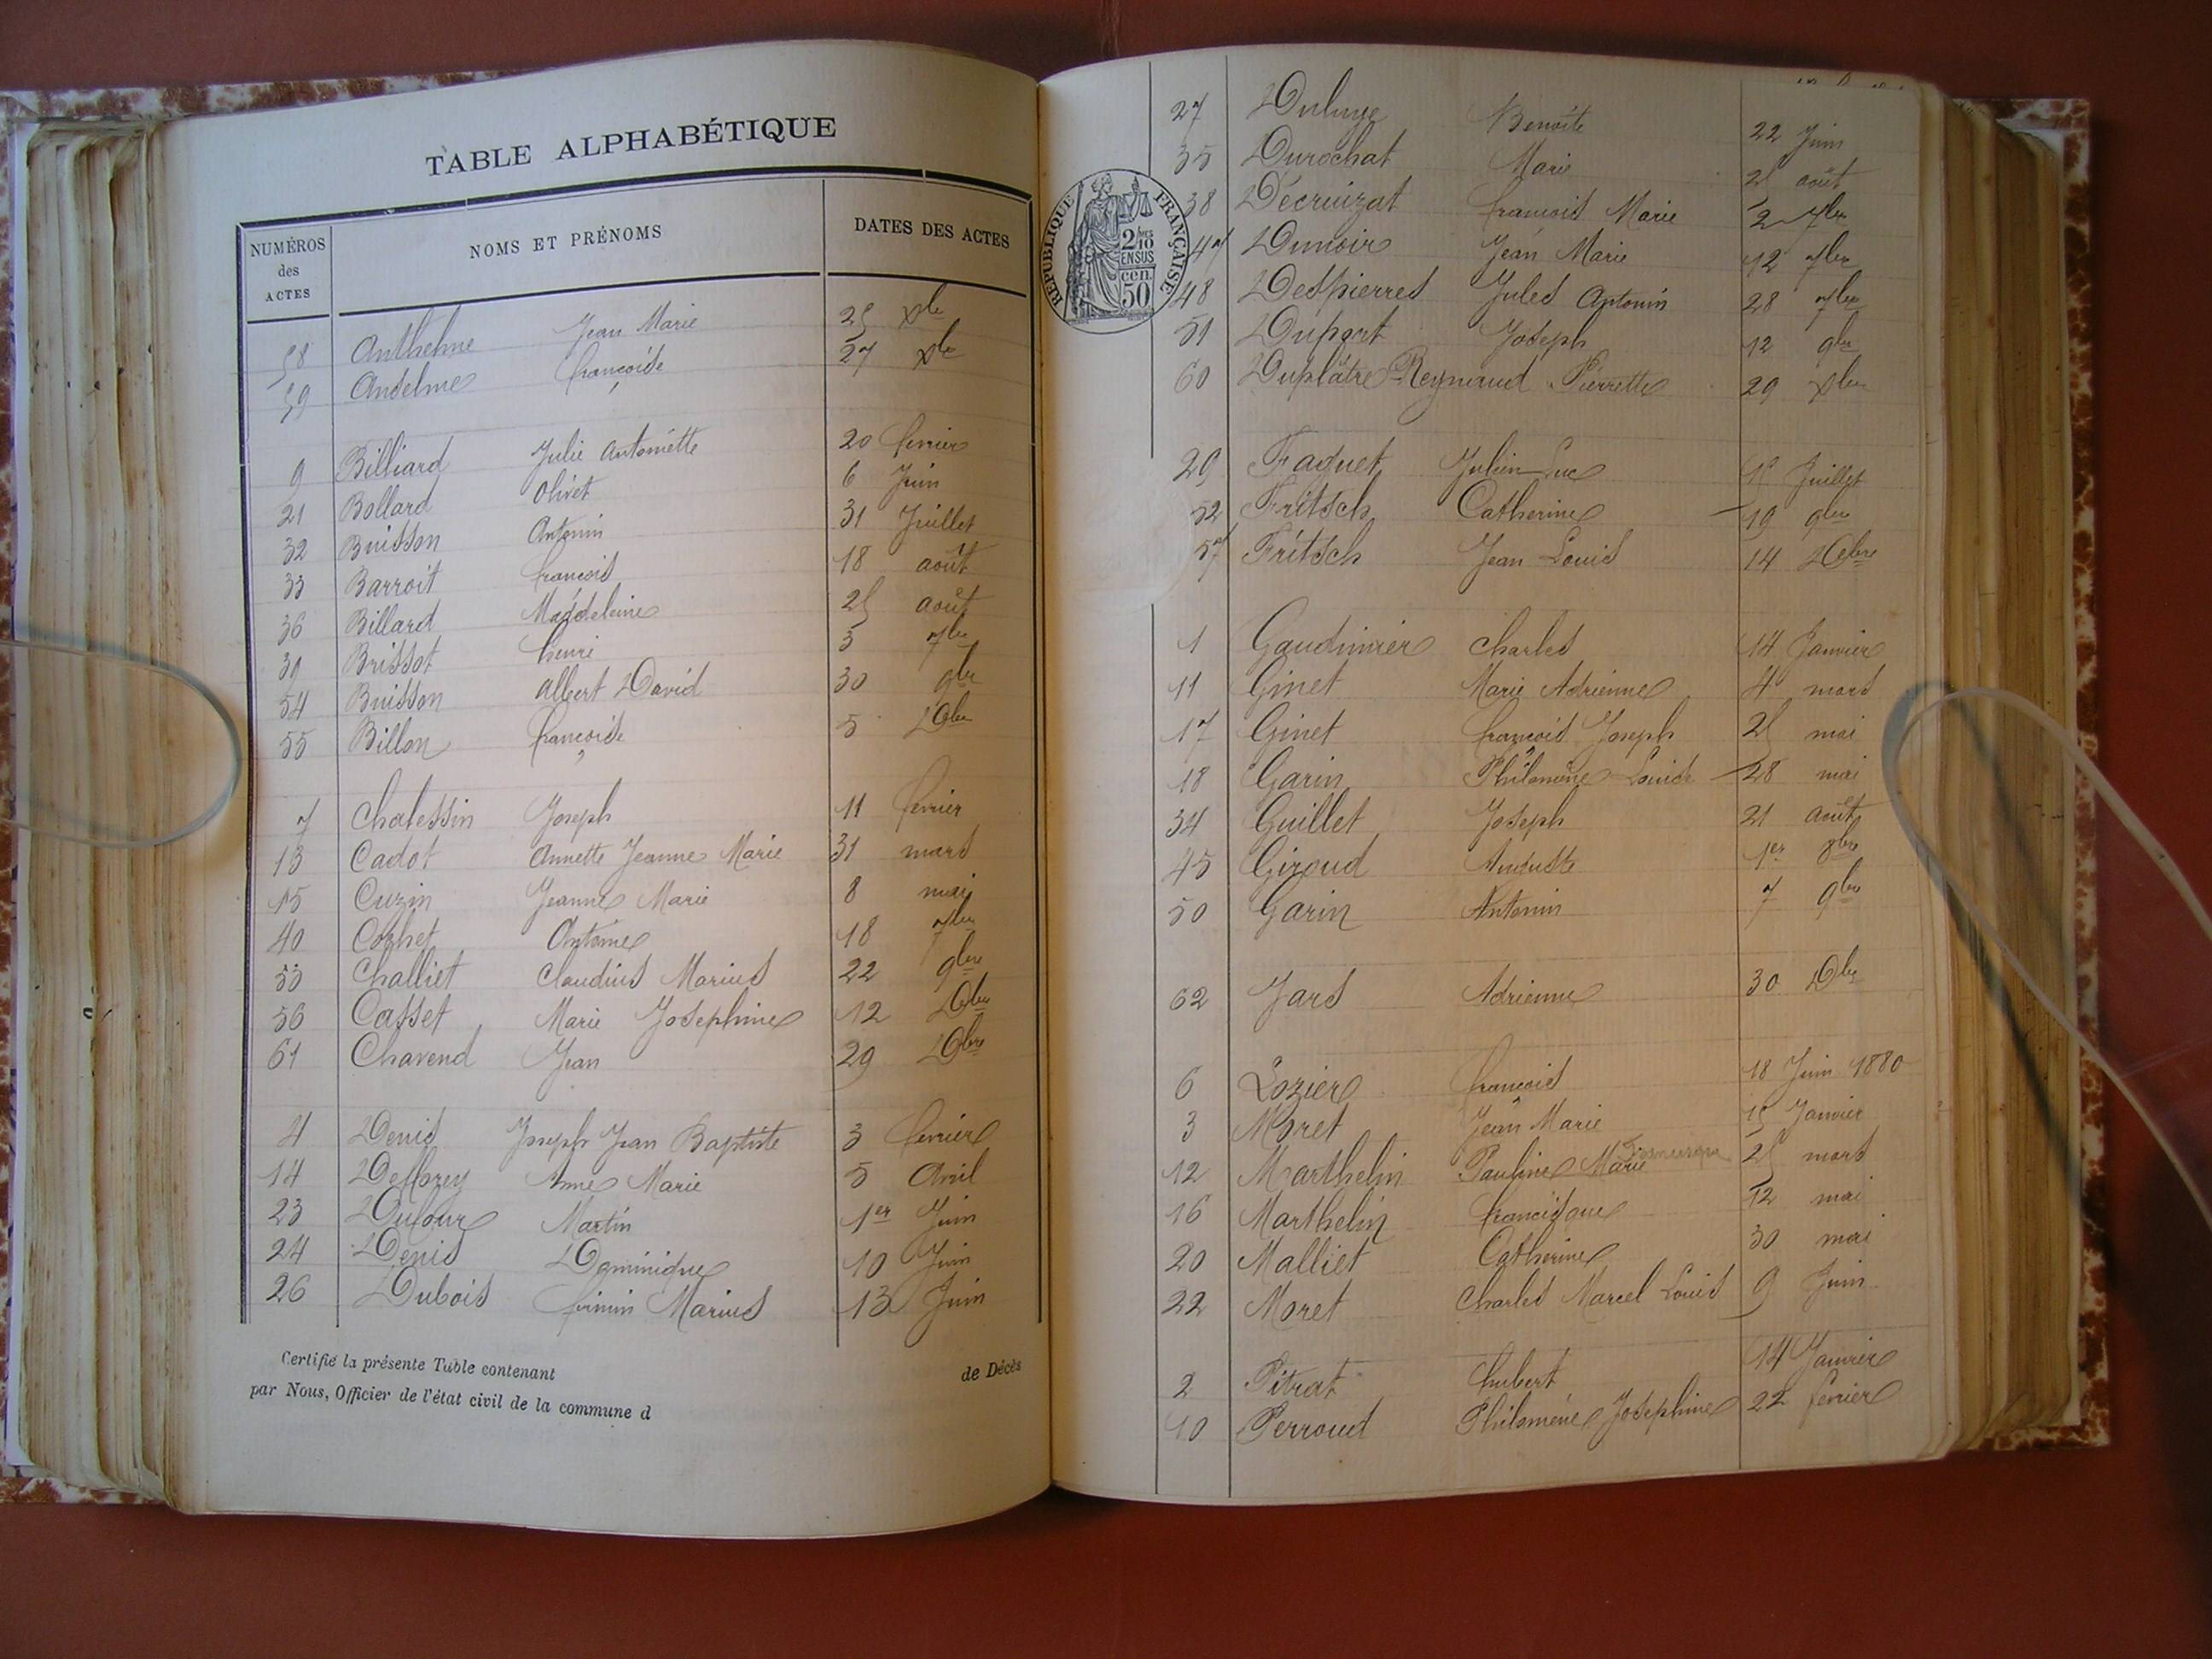 TABLE ALPHABÉTIQUE
NUMÉROS des ACTES NOMS ET PRÉNOMS DATES DES ACTES
58 Anthelme Jean Marie 25 Xbe
59 Anselme françoise 27 Xbe
9 Billiard Julie Antoinette 20 février
21 Bollard Olivet 6 Juin
32 Buisson Antonin 31 Juillet
33 Barroit françois 18 août
36 Billard Magdeleine 25 août
39 Brissot henri 3 7bre
54 Buisson Albert David 30 9bre
55 Billon françoise 5 Dbre
7 Chalessin Joseph 11 février
13 Cadot Annette Jeanne Marie 31 mars
15 Cuzin Jeanne Marie 8 mai
40 Cochet Antoine 18 7bre
53 Challiet Claudius Marius 22 9bre
56 Casset Marie Josephine 12 Dbre
61 Chavend Jean 29 Dbre
4 Denis Joseph Jean Baptiste 3 février
14 Anne Marie 5 Avril
23 Dufour Martin 1er Juin
24 Denis Dominique 10 Juin
26 Dubois firmin Marius 13 Juin
Certifié la présente Table contenant de Décès
par Nous, Officier de l'état civil de la commune d
RÉPUBLIQUE FRANÇAISE
2/10 EN SUS
50 cen
27 Benoite 22 Juin
35 Durochat Marie 25 août
38 Décruizat françois Marie 2 7bre
47 Dunoir Jean Marie 12 7bre
48 Despierres Jules Antonin 28 7bre
51 Duport Joseph 12 9bre
60 Duplâtre Reynaud Pierrette 29 Xbre
29 Faguet Julien Luc 15 Juillet
52 Fritsch Catherine 19 9bre
57 Fritsch Jean Louis 14 Debre
1 Gaudinier Charles 14 Janvier
11 Ginet Marie Adrienne 4 mars
17 Ginet françois Joseph 25 mai
18 Garin Philomène Louise 28 mai
34 Guillet Joseph 21 août
45 Giroud Auguste 1er 8bre
50 Garin Antonin 7 9bre
62 Jars Adrienne 30 Dbre
6 Lozier françois 18 Juin 1880
3 Moret Jean Marie 15 Janvier
12 Marthelin Pauline Marie 25 mars
16 Marthelin francisque 12 mai
20 Malliet Catherine 30 mai
22 Moret Charles Marcel Louis 9 Juin
2 Pitrat hubert 14 Janvier
10 Perroud Philomène Josephine 22 février